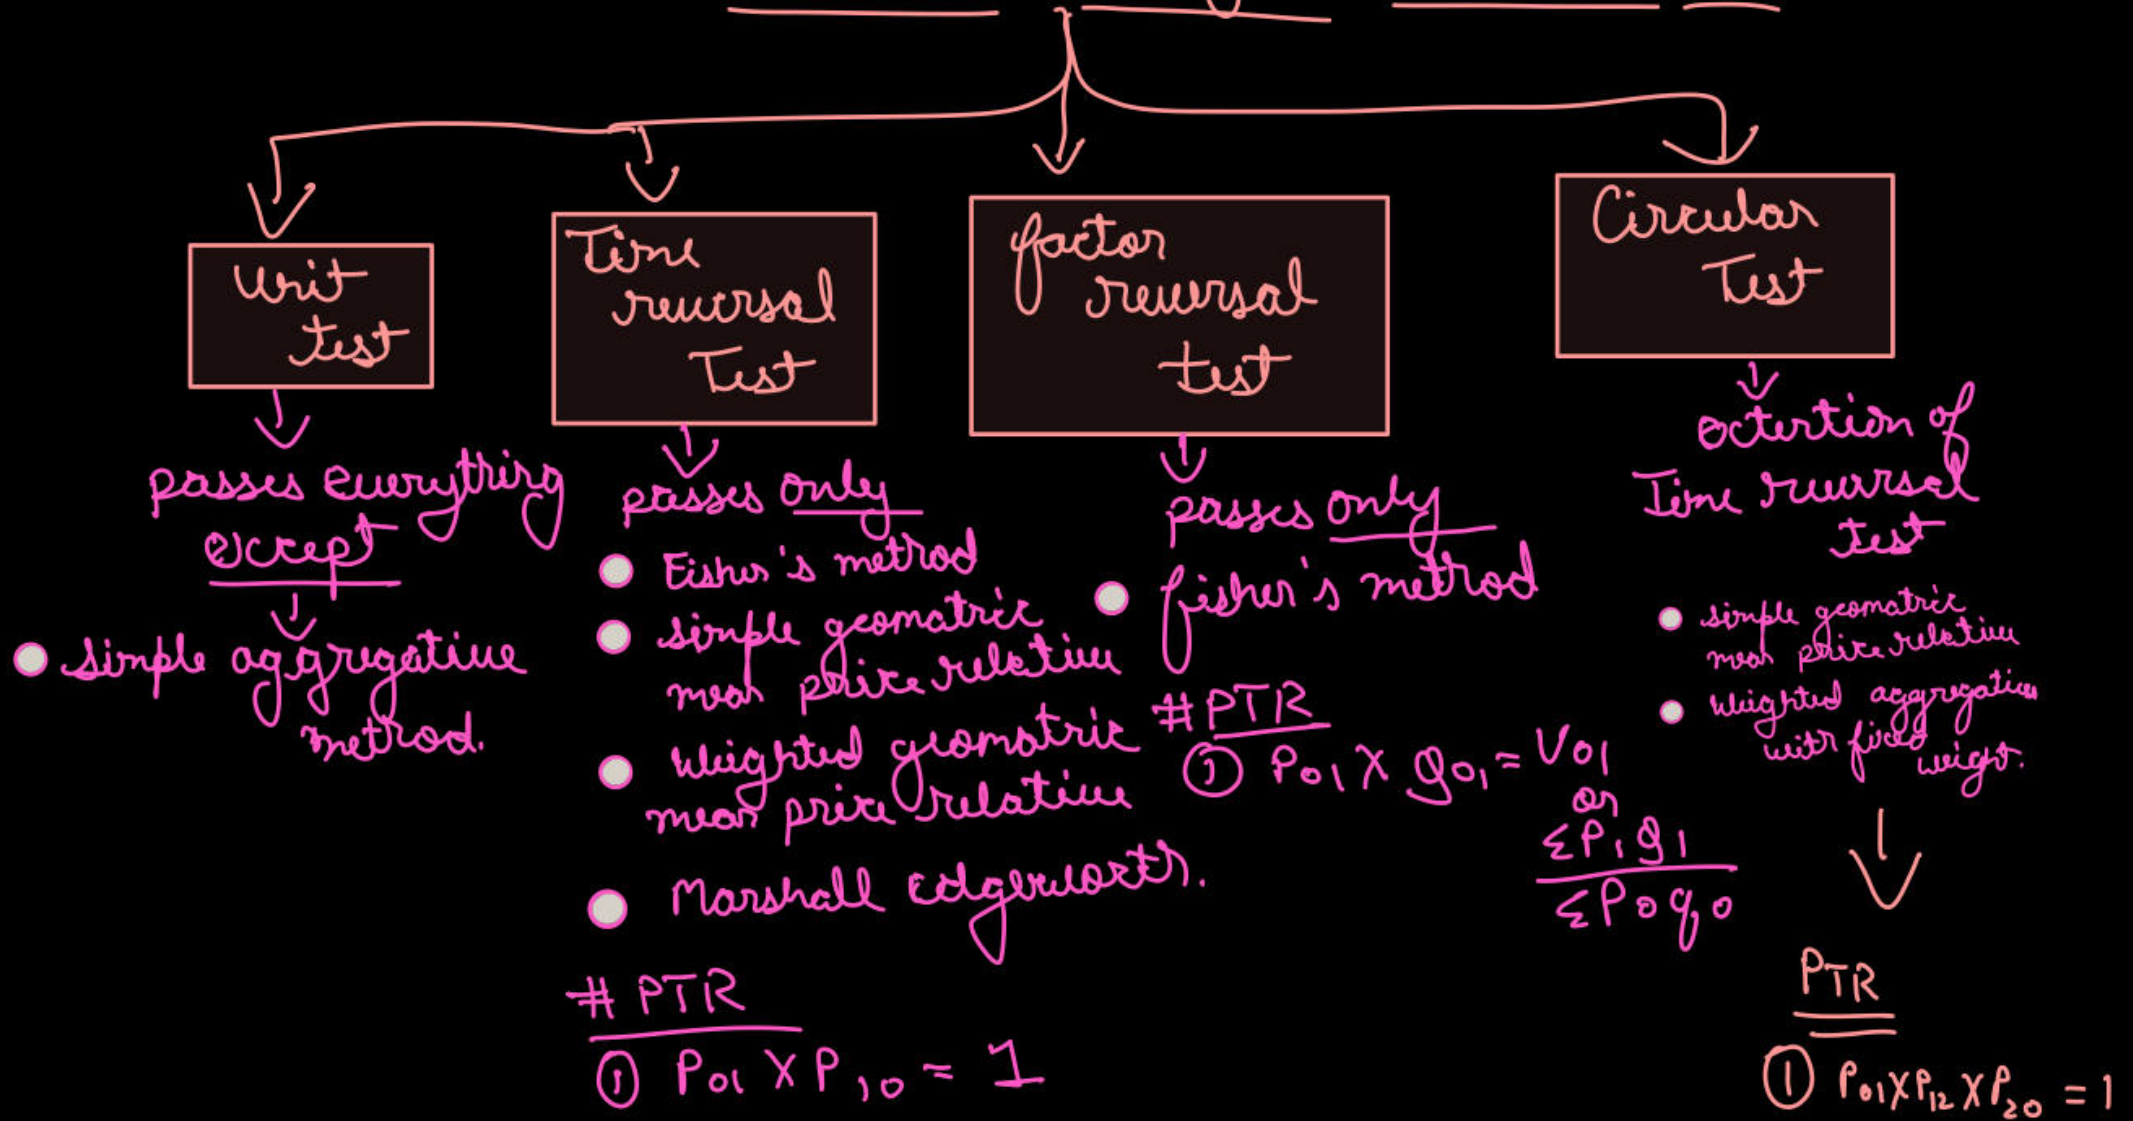 Unit
test
passes everything
except
simple aggregative
method.
Time
reversal
Test
passes only
Fisher's method
simple geomatric
mean price relative
Weighted geomatric
mean price relative
Marshall edgeworth.
# PTR
① P01 X P10 = 1
factor
reversal
test
passes only
fisher's method
#PTR
① P01 X q01 = V01
or
ΣP1q1
ΣP0q0
Circular
Test
extention of
Time reversal
test
simple geomatric
mean price relative
Weighted aggregative
with fixed
weight.
PTR
① P01XP12XP20 = 1